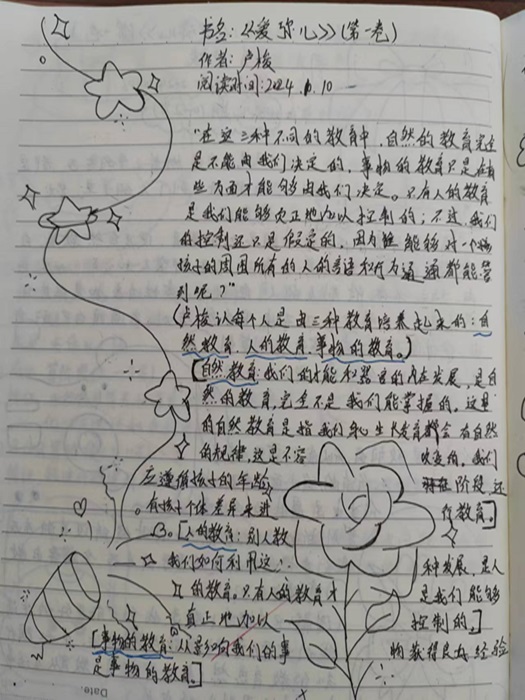 书名:《爱弥儿》(第一卷)
作者:卢梭
阅读时间:2024.6.10
"在这三种不同的教育中,自然的教育完全
是不能由我们决定的,事物的教育只是在有
些方面才能够由我们决定。只有人的教育
是我们能够真正地加以控制的;不过,我们
的控制还只是假定的,因为谁能够对一个
孩子的周围所有的人的言语和行为通通都能管
到呢?"
(卢梭认每个人是由三种教育培养起来的:自
然教育、人的教育、事物的教育。)
[自然教育:我们的才能和器官的内在发展,是自
然的教育,完全不是我们能掌握的。这里
的自然教育是指我们和生长发育都会有自然
的规律,这是不容 改变的,我们
应遵循孩子的年龄 阶段,还
有孩子个体差异来进 行教育。]
[人的教育:别人教
我们如何利用这 种发展,是人
的教育。只有人的教育才 是我们能够
真正地加以 控制的。]
[事物的教育:从影响我们的事 物获得良好经验
是事物的教育]
Date